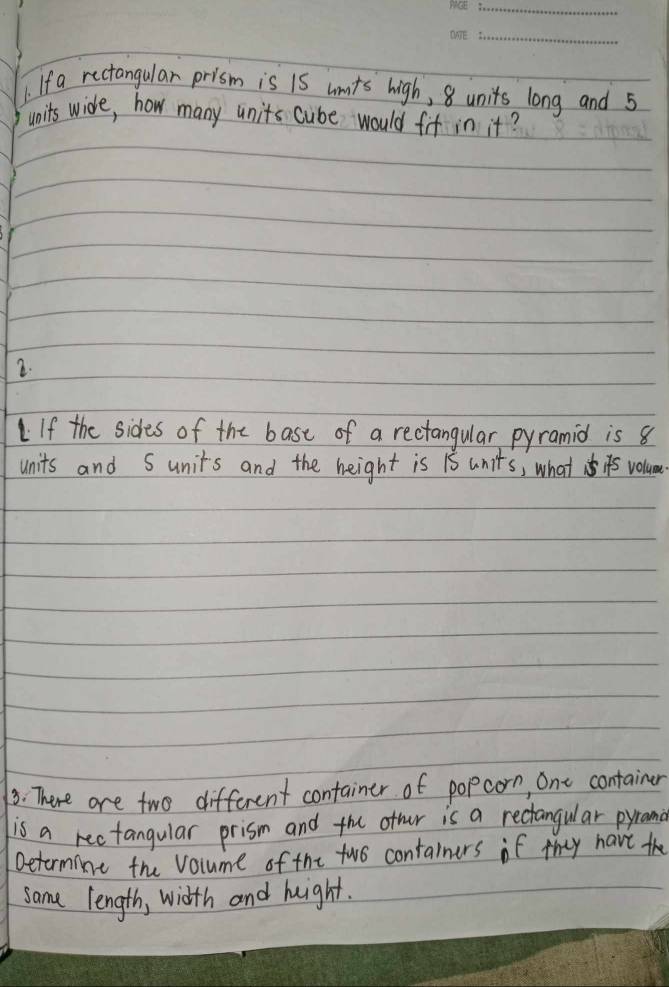 PAGE :
DATE :
1. If a rectangular prism is 15 units high, 8 units long and 5
units wide, how many units cube would fit in it?
2.
2. If the sides of the base of a rectangular pyramid is 8
units and 5 units and the height is 15 units, what is its volume.
3. There are two different container of popcorn, One container
is a rectangular prism and the other is a rectangular pyramid
Determine the volume of the two containers if they have the
same length, width and height.